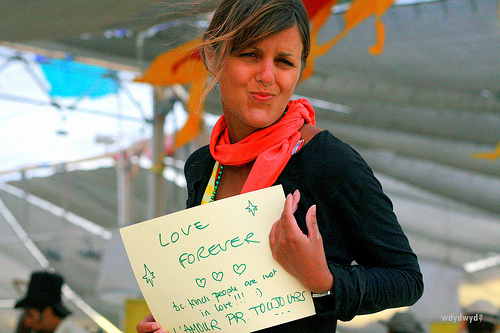 LOVE
FOREVER
to much people are not
in love !!! :)
L'AMOUR PR. TOUJOURS
...
wdydwyd?